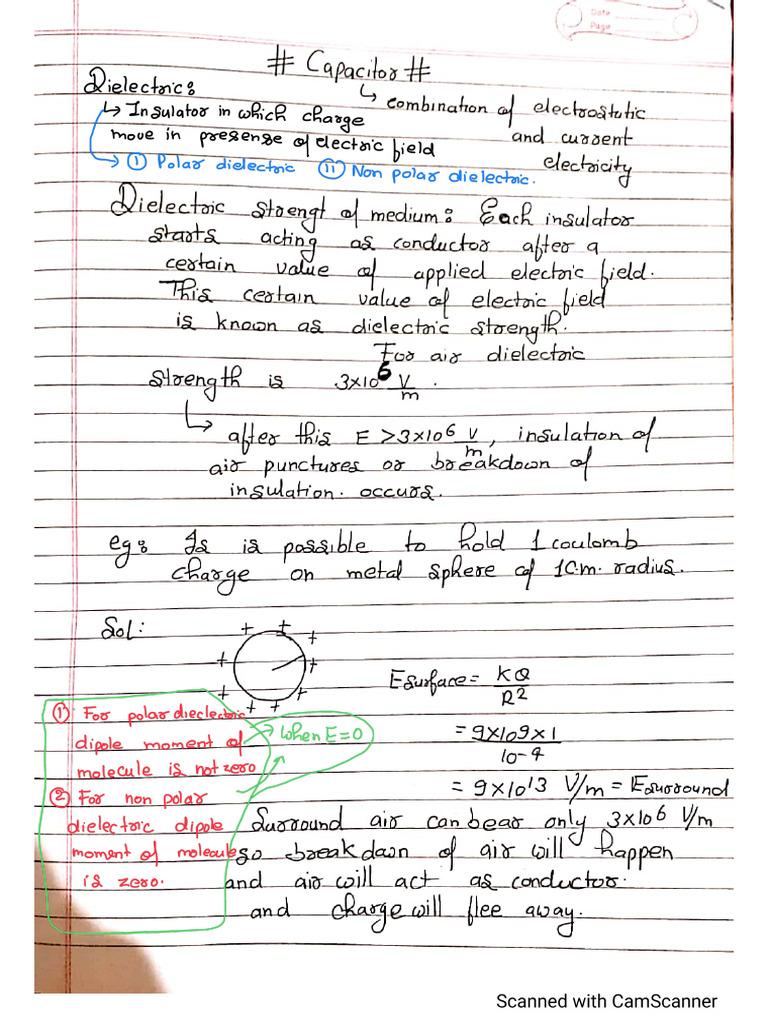 Date
Page
# Capacitor #
↳ combination of electrostatic
and current
electricity
Dielectric:
↳ Insulator in which charge
move in presense of electric field
① Polar dielectric ⑪ Non polar dielectric.
Dielectric strengt of medium: Each insulator
starts acting as conductor after a
certain value of applied electric field.
This certain value of electric field
is known as dielectric strength.
For air dielectric
strength is 3×10⁶ V/m.
↳ after this E > 3×10⁶ V/m, insulation of
air punctures or breakdown of
insulation. occurs.
eg: Is is possible to hold 1 coulomb
charge on metal sphere of 1c.m. radius.
Sol:
+ + + + + + + + + +
E surface = KQ/R²
= 9×10⁹×1/10⁻⁴
= 9×10¹³ V/m = E surround
① For polar dieclectric
dipole moment of
molecule is not zero
② For non polar
dielectric dipole
moment of molecule
is zero.
when E=0
Surround air can bear only 3×10⁶ V/m
so breakdown of air will happen
and air will act as conductor.
and charge will flee away.
Scanned with CamScanner